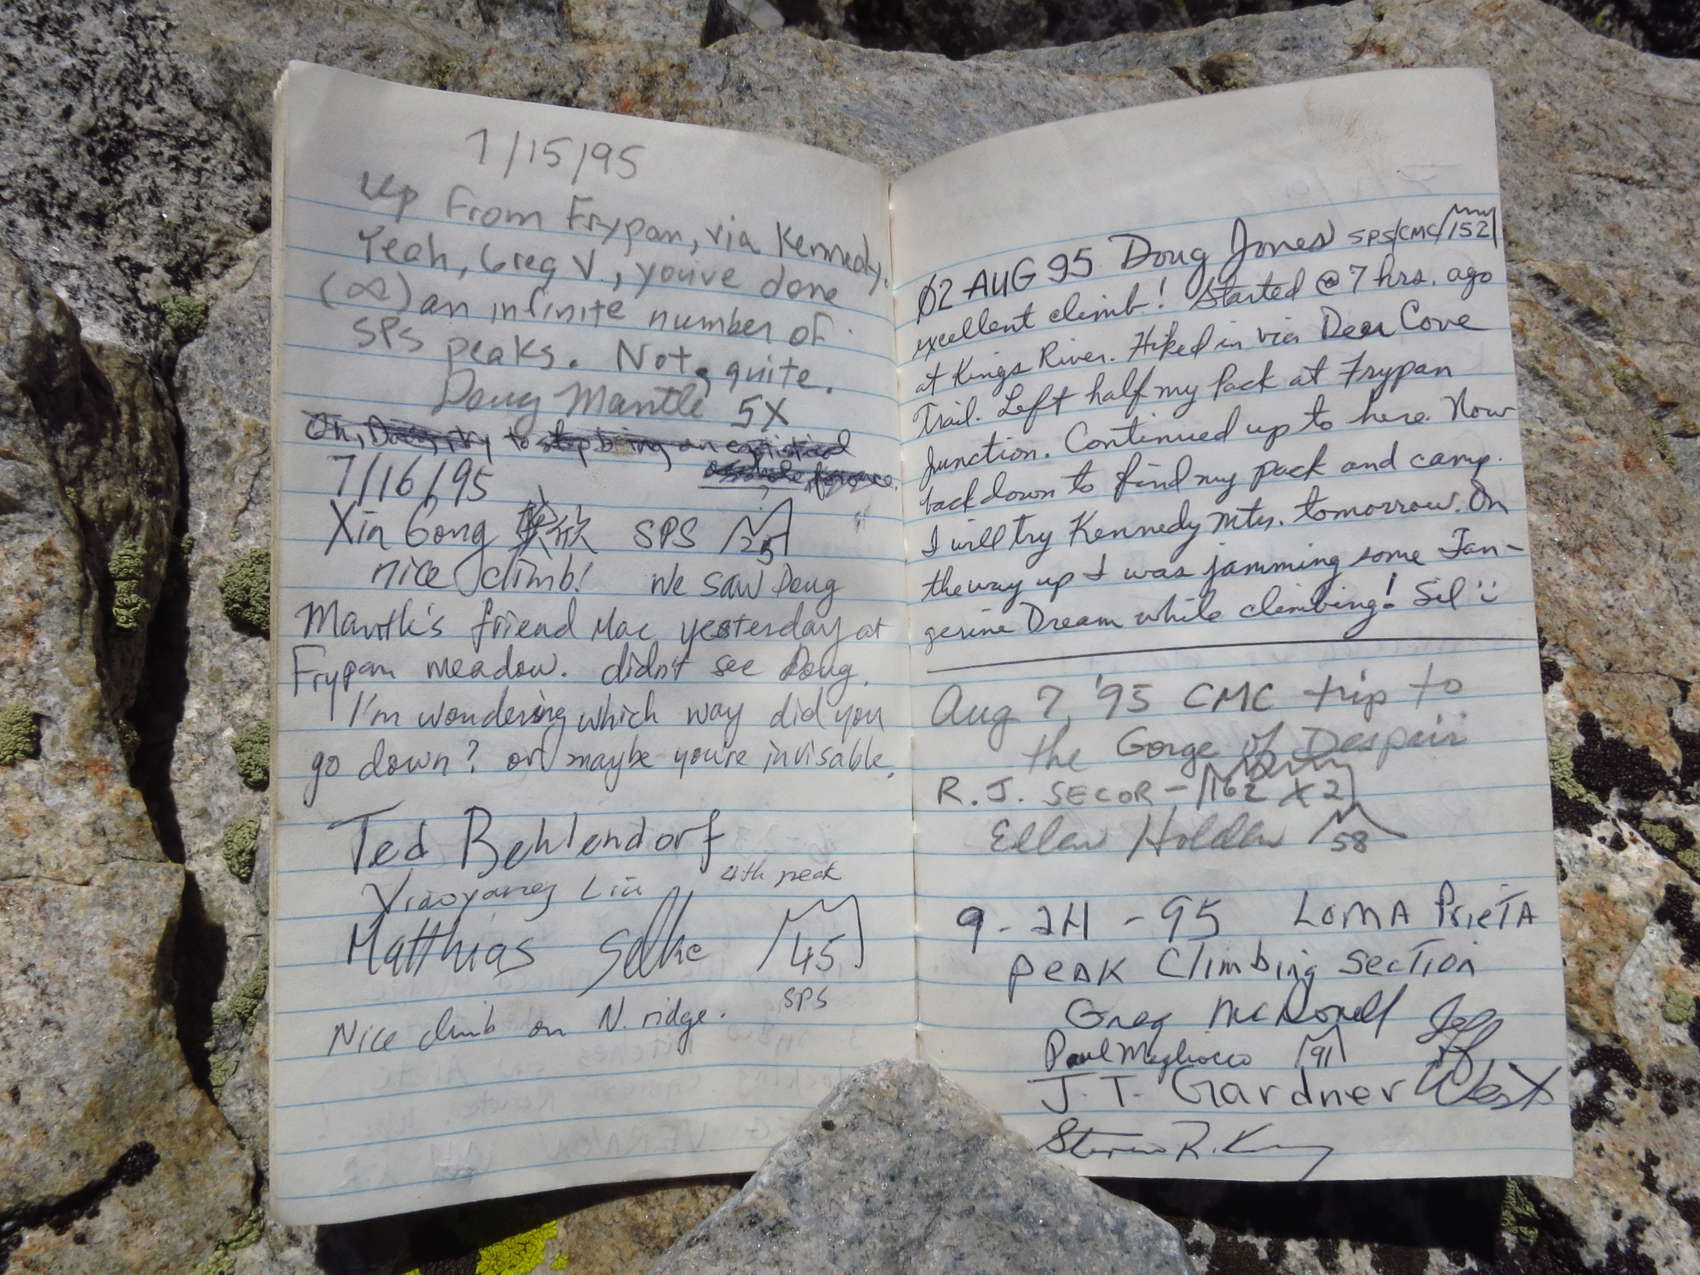 7/15/95
Up from Frypan, via Kennedy.
Yeah, Greg V., youve done
(∞) an infinite number of
SPS peaks. Not quite.
Doug Mantle 5X
Oh, Doug, try to stop being an egotistical
asshole for once.
7/16/95
Xin Gong 欣 SPS 25
nice climb! We saw Doug
Mantle's friend Mac yesterday at
Frypan meadow. didn't see Doug.
I'm wondering which way did you
go down? or maybe you're invisable.
Ted Behlendorf
Xiaoyang Liu 4th peak
Matthias Selke 45
SPS
Nice climb on N. ridge.
02 AUG 95 Doug Jones SPS/CMC/152
excellent climb! Started @ 7 hrs. ago
at Kings River. Hiked in via Deer Cove
Trail. Left half my pack at Frypan
Junction. Continued up to here. Now
back down to find my pack and camp.
I will try Kennedy Mtn. tomorrow. On
the way up I was jamming some Tan-
gerine Dream while climbing!
Aug 7, '95 CMC trip to
the Gorge of Despair
R.J. SECOR - 162 X2
Ellen Holden 58
9-24-95 LOMA PrieTA
peAK Climbing Section
Greg McDonell Jeff
Paul Magliocco 91
J.T. Gardner West
Steven R.